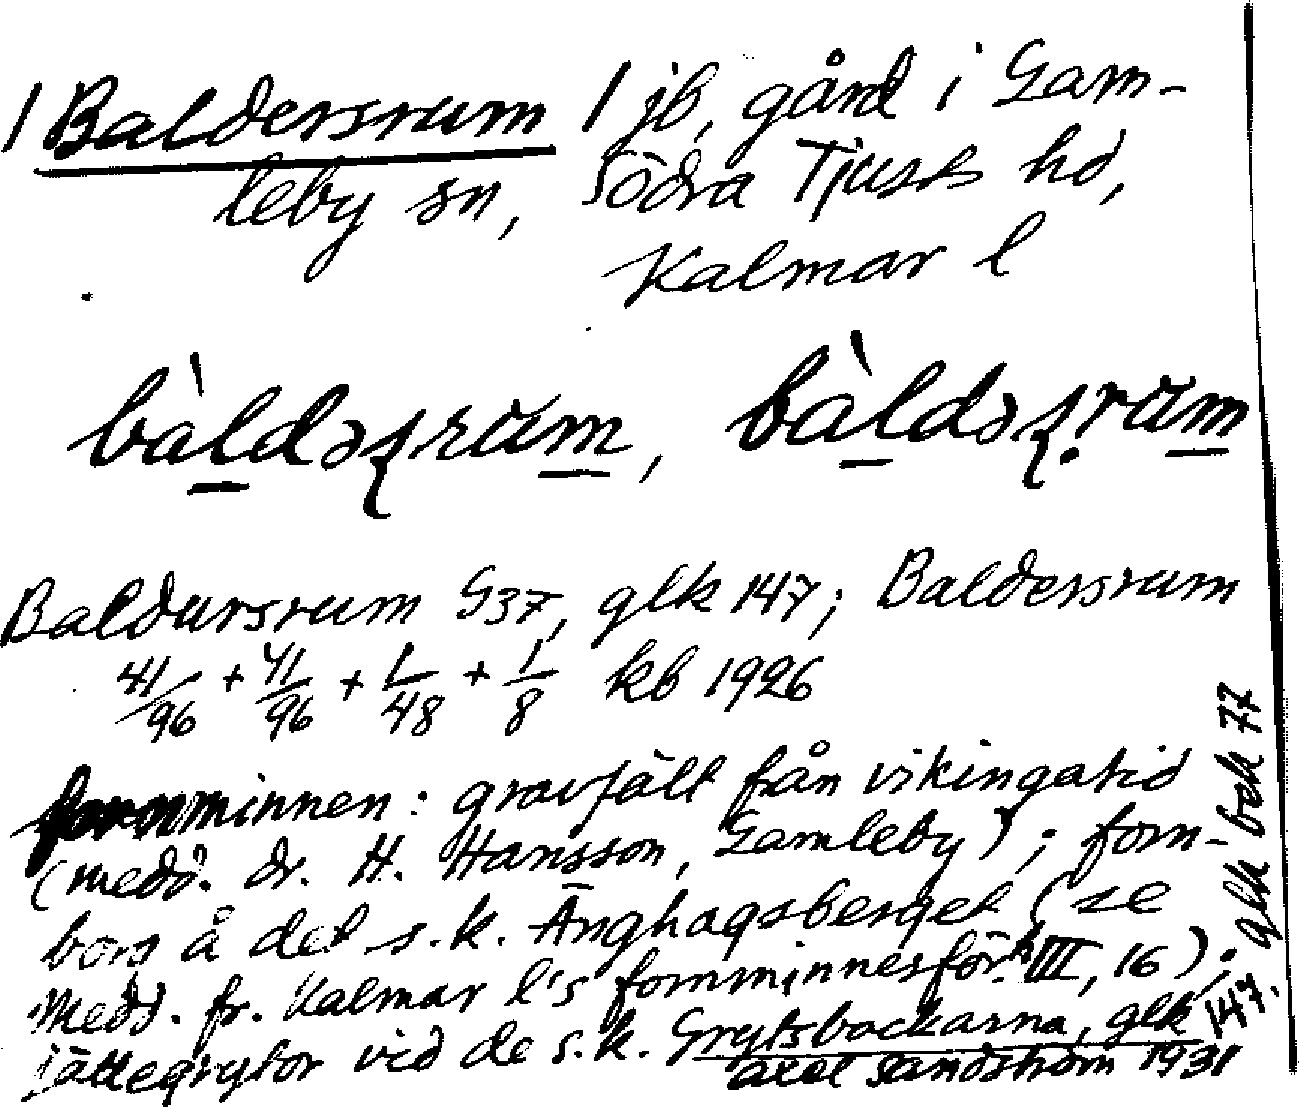 / Baldersrum / jb, gård i Gam-
leby sn, Södra Tjusts hd,
Kalmar l
bàldəʂrum, bàldəʂ.rum
Baldursrum G37, glk 147; Baldersrum
41/96 + 41/96 + 1/48 + 1/8 kb 1926
fornminnen: gravfält från vikingatid
(medd. dr. H. Hansson, Gamleby); forn-
borg å det s.k. Änghagsberget (se
Medd. fr. Kalmar l's fornminnesför. III, 16);
jättegrytor vid de s.k. Grytsbockarna, glk
147. glk bok 77
Axel Sandström 1931